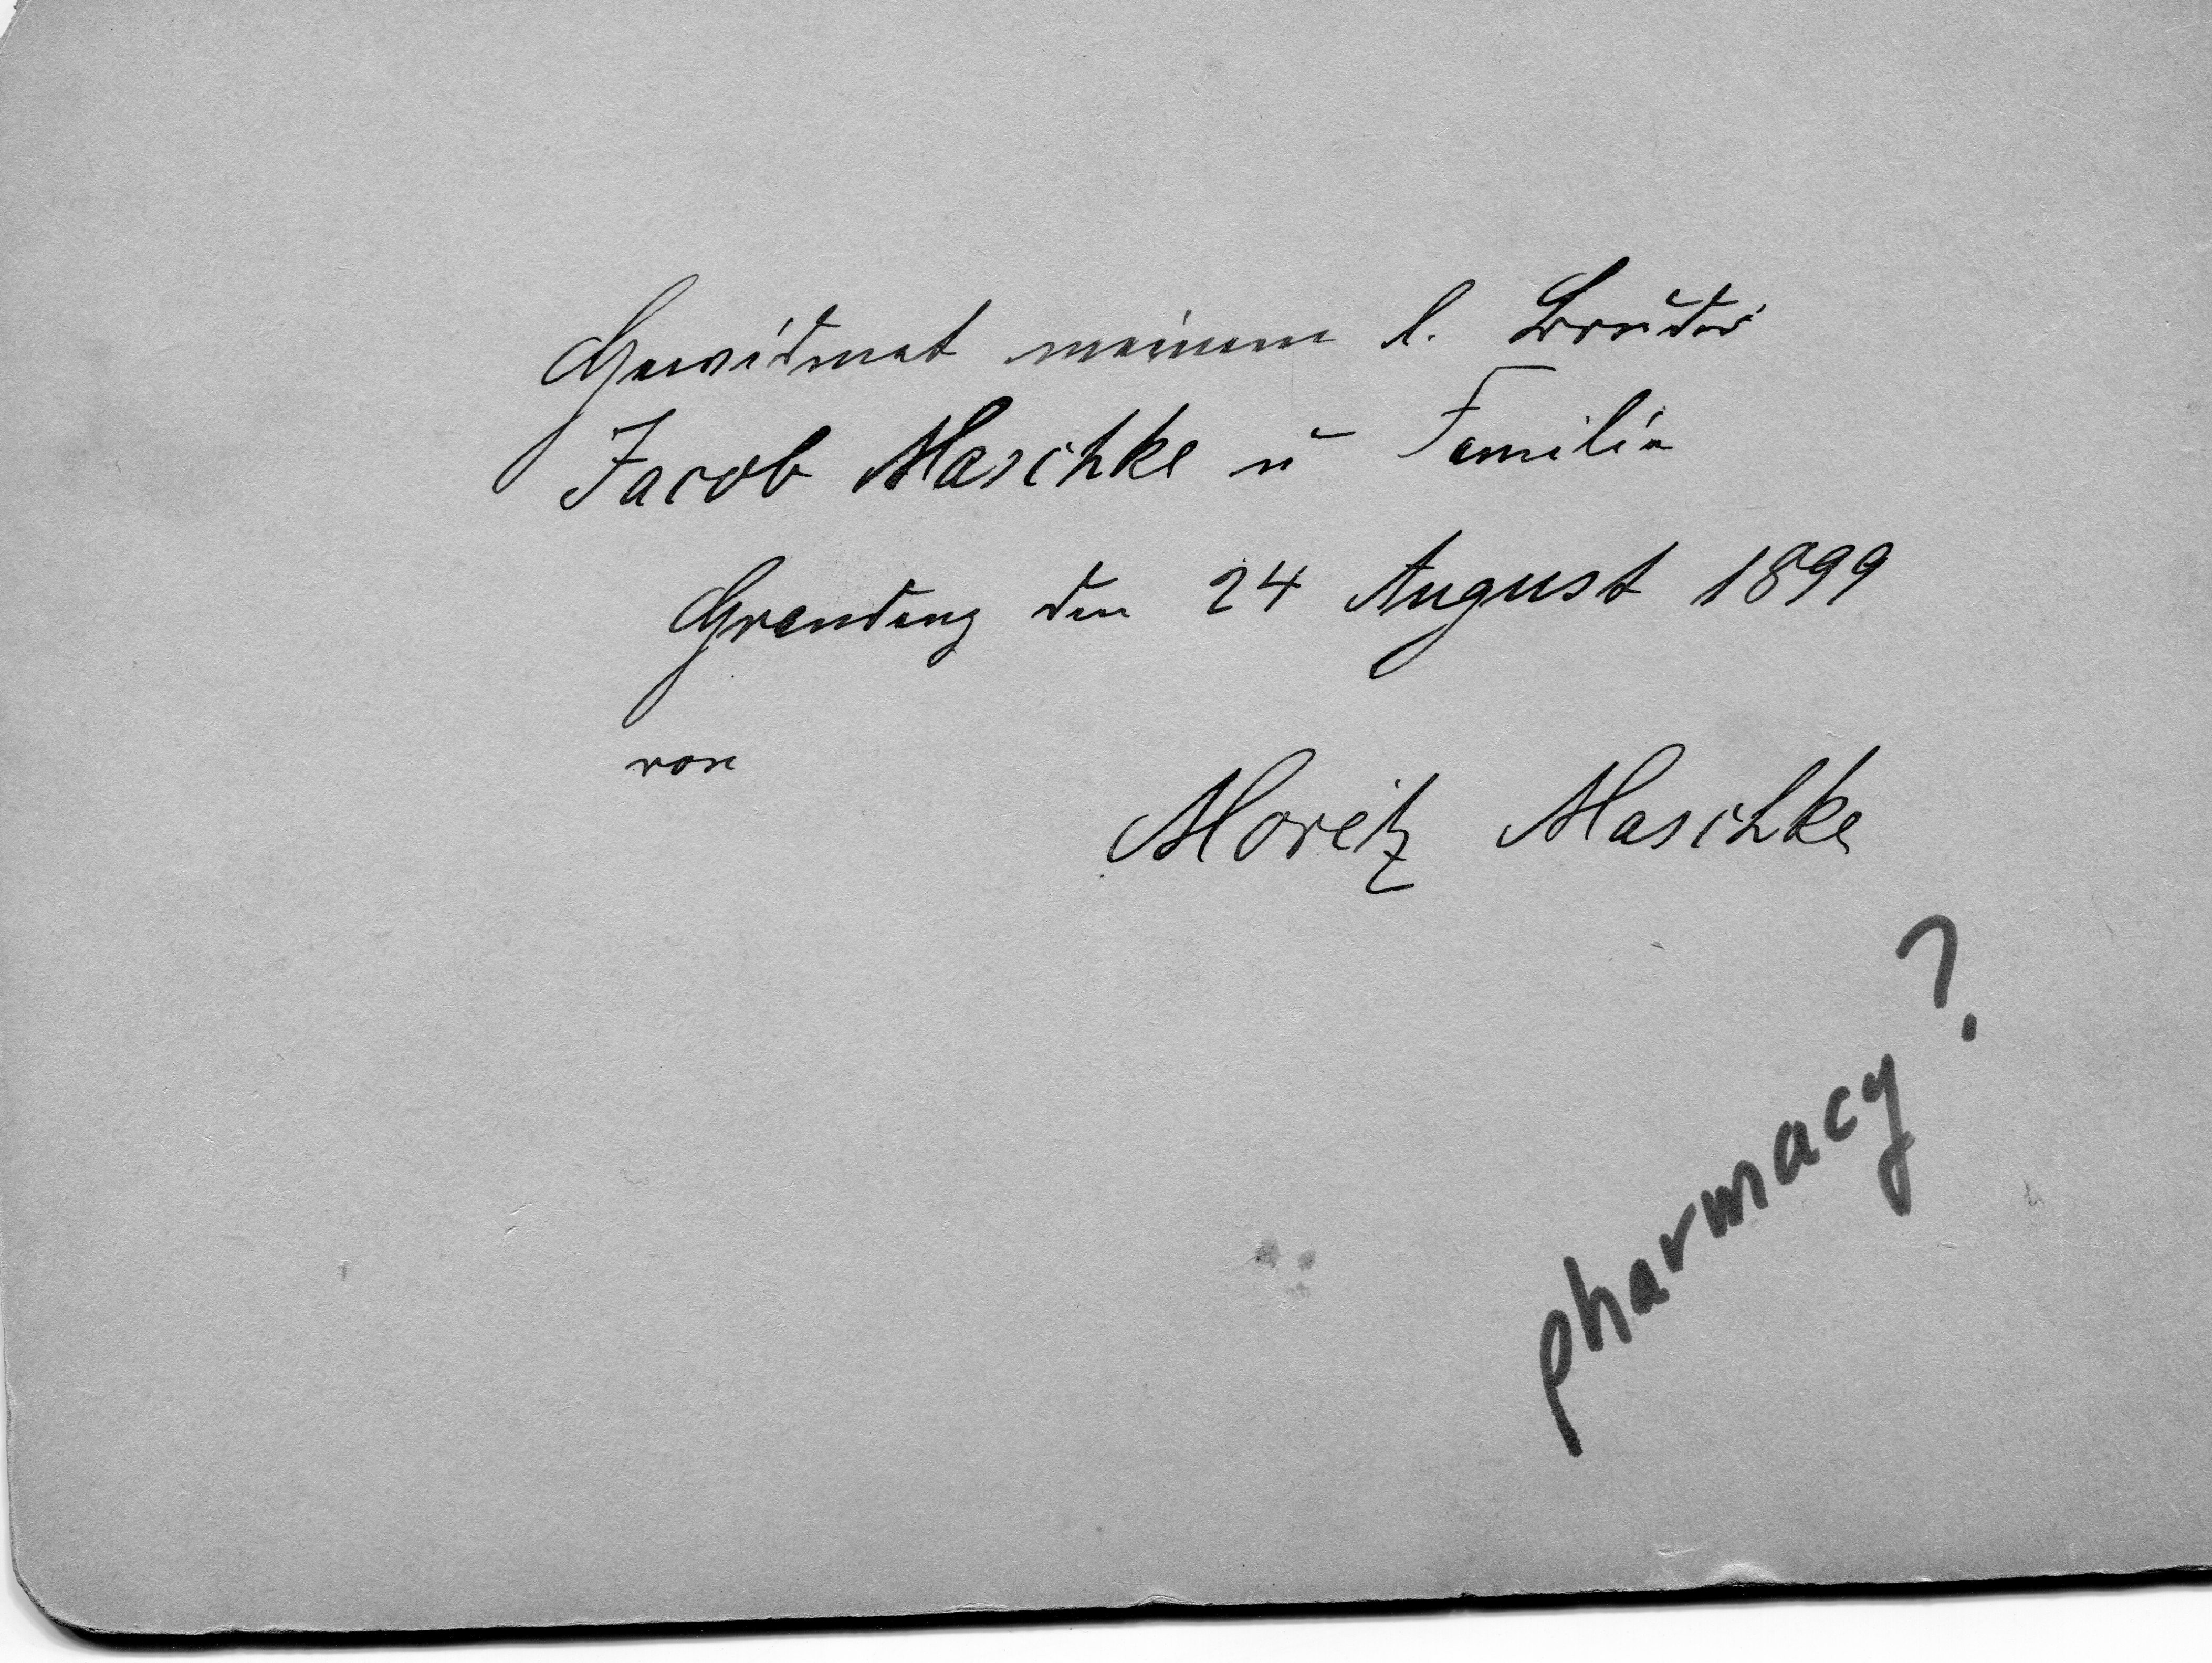 Gewidmet meinem l. Bruder
Jacob Maschke u Familie
Graudenz den 24 August 1899
von
Moritz Maschke
pharmacy?